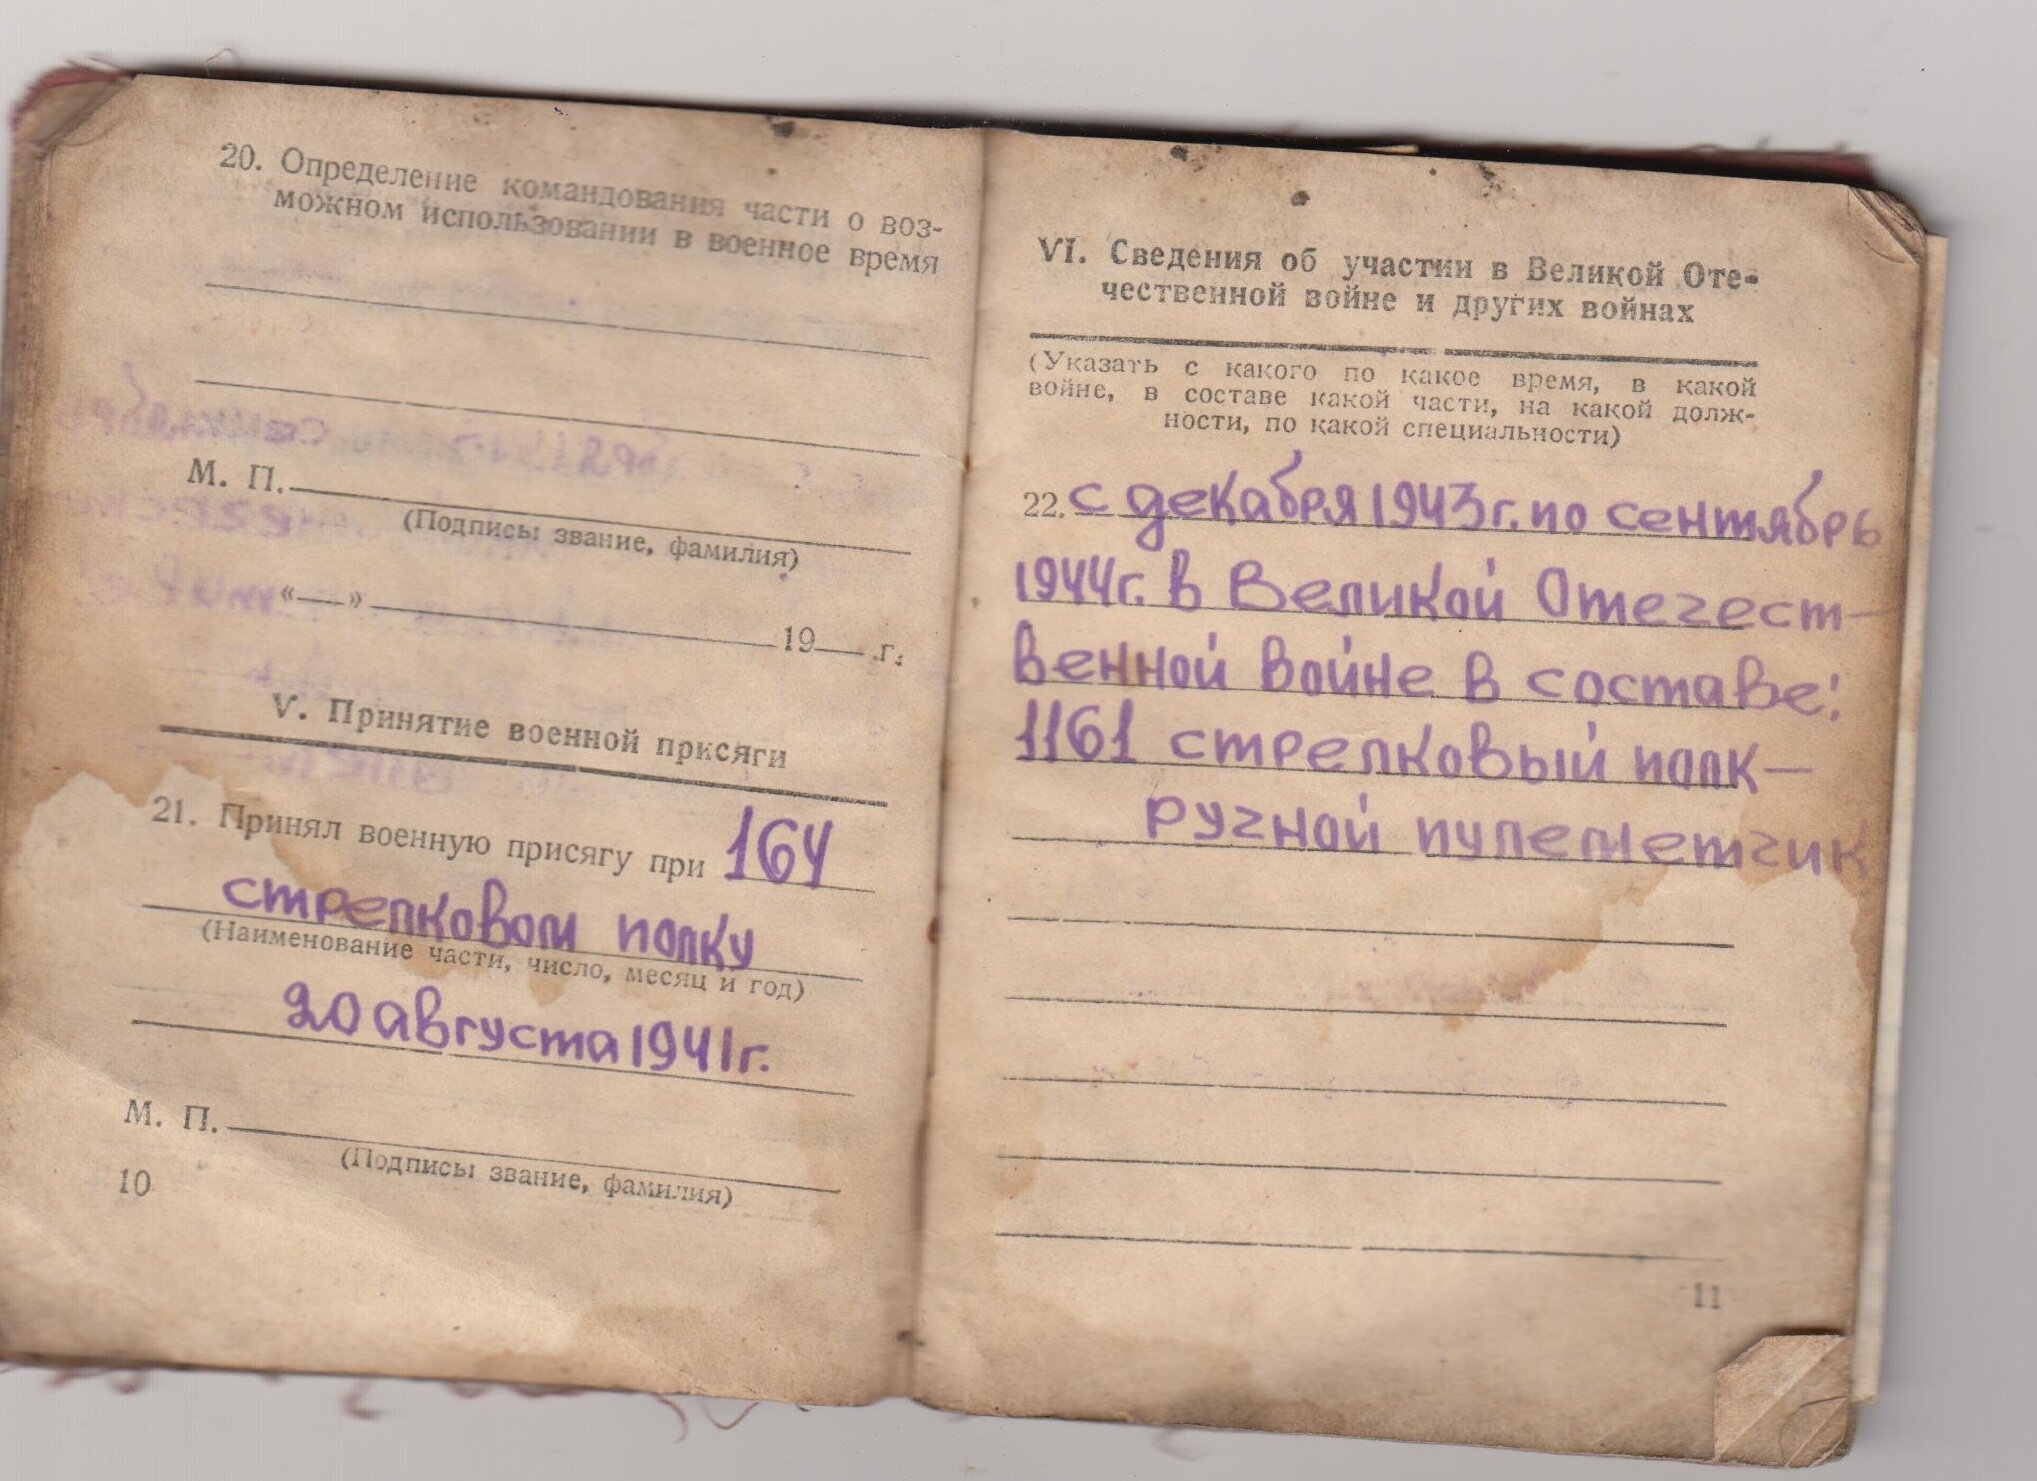 20. Определение командования части о воз-
можном использовании в военное время
М. П.
(Подпись: звание, фамилия)
«—» 19 г.
V. Принятие военной прксяги
21. Принял военную присягу при 164
стрелковом полку
(Наименование части, число, месяц и год)
20 августа 1941 г.
М. П.
(Подпись: звание, фамилия)
10
VI. Сведения об участии в Великой Оте-
чественной войне и других войнах
(Указать с какого по какое время, в какой
войне, в составе какой части, на какой долж-
ности, по какой специальности)
22. С декабря 1943 г. по сентябрь
1944 г. в Великой Отечест-
венной войне в составе:
1161 стрелковый полк —
ручной пулеметчик
11